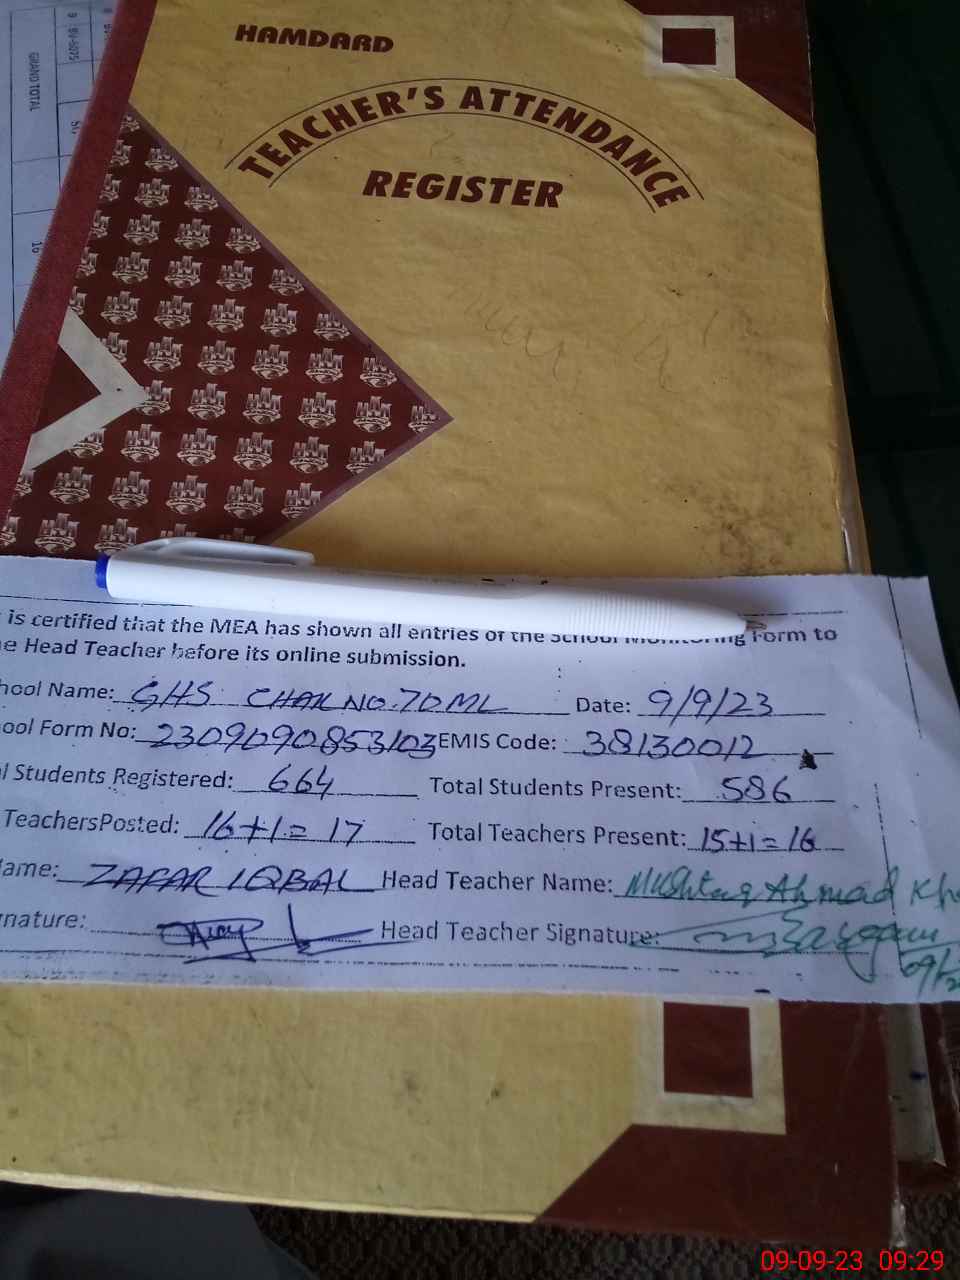 HAMDARD
TEACHER'S ATTENDANCE
REGISTER
GRAND TOTAL
is certified that the MEA has shown all entries of the School Monitoring Form to
e Head Teacher before its online submission.
hool Name: GHS CHAK NO. 70 ML Date: 9/9/23
ool Form No: 2309090853103 EMIS Code: 38130012
l Students Registered: 664 Total Students Present: 586
TeachersPosted: 16+1= 17 Total Teachers Present: 15+1= 16
ame: ZAFAR IQBAL Head Teacher Name: Mushtaq Ahmad Kh
nature: Head Teacher Signature:
09-09-23 09:29